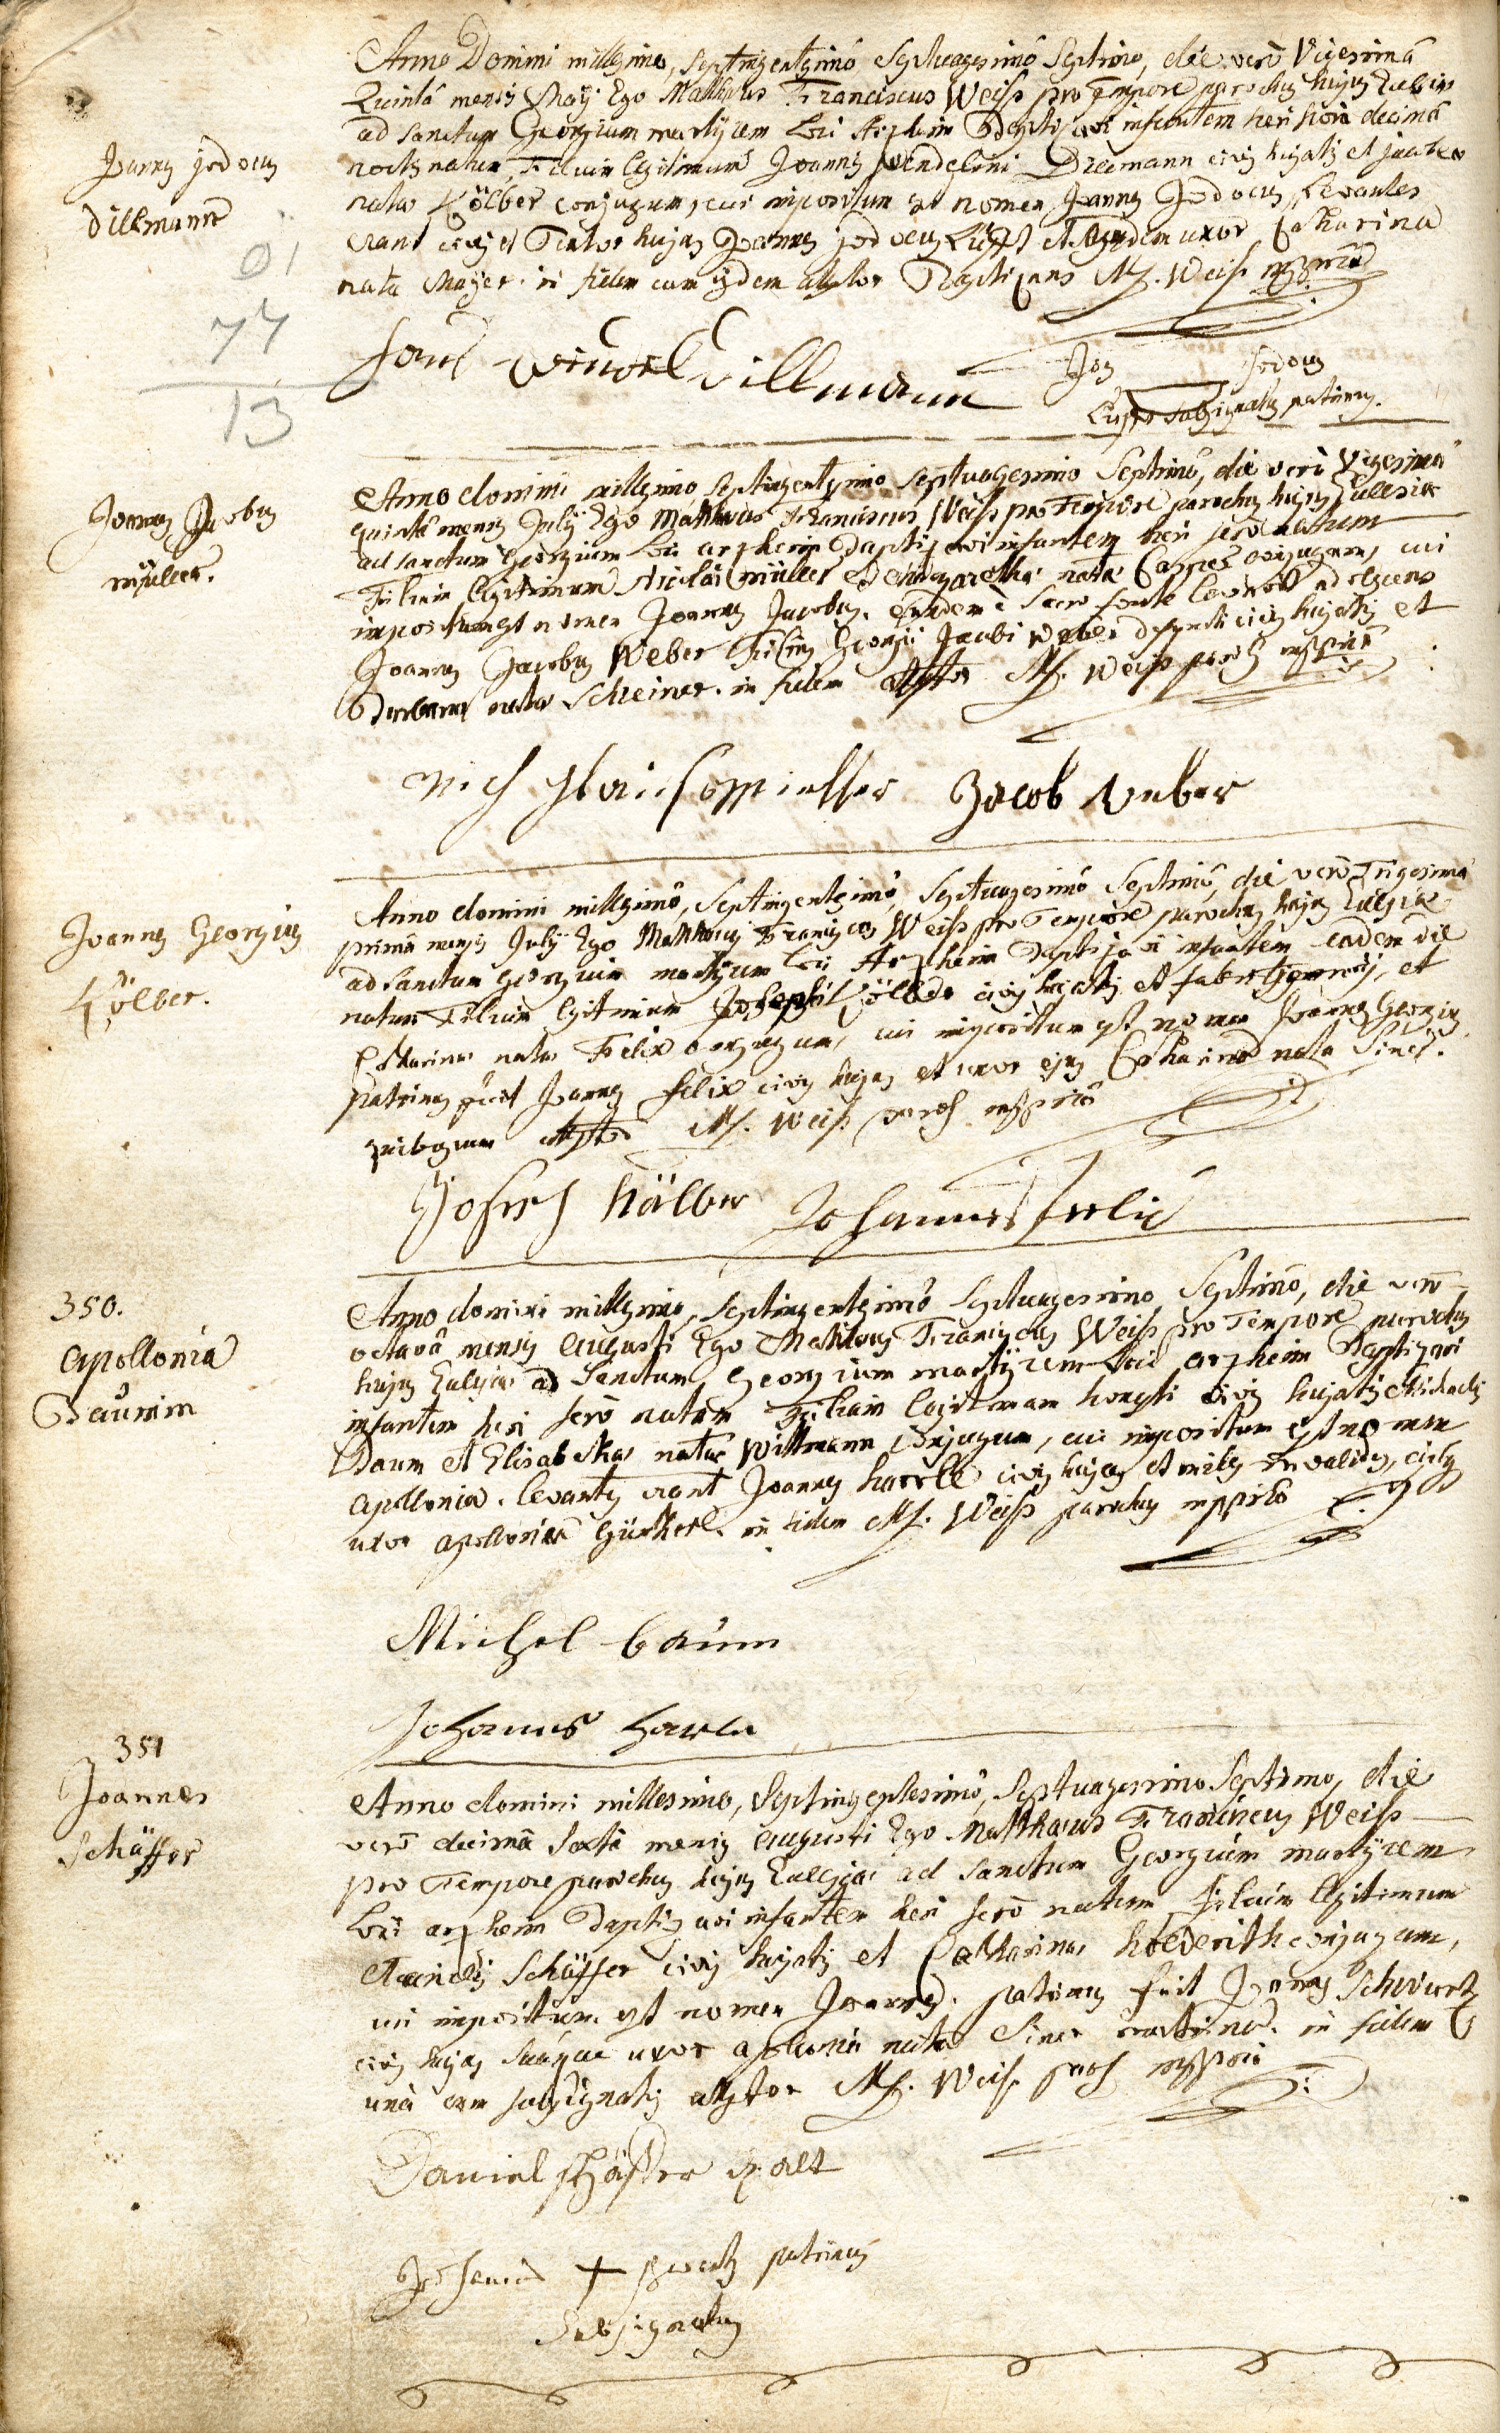 Anno Domini millesimo, septingentesimo septuagesimo septimo, die vero vigesimâ
Quintâ mensis Maij Ego Matthaeus Franciscus Weiss pro tempore parochus hujus Ecclesiae
ad sanctum Georgium martyrem loci Arzheim baptizavi infantem heri horâ decimâ
noctis natum, Filium legitimum Joannis Wendelini Dillmann civis hujatis et
natae Kölber conjugum, cui impositum est nomen Joannes Jodocus Levantes
erant civis et hujas Joannes jodocus et uxor Catharina
nata Mayer. in fidem cum ijsdem attestor Baptizans M. Weiss
Joannes jodocus
Dillmann
01
77
13
Hans Wendel Dillmann
Jos Jodocus
subsignatus patrinus.
Anno domini millesimo septingentesimo septuagesimo septimo, die verò vigesimâ
quintâ mensis Julij Ego Matthaeus Franciscus Weiss pro Tempore parochus hujus Ecclesiae
ad sanctum Georgium loci arzheim baptizavi infantem heri serò natum
Filium legitimum Nicolai müller et margarethae nata conjugum, cui
impositum est nomen Joannes Jacobus. eundem è sacro fonte levavit adolescens
Joannes Jacobus Weber Filius Georgii Jacobi Weber defuncti civis hujatis et
Barbarae nata Schreiner. in fidem attestor M. Weiss paroch
Joannes Jacobus
müller.
Jacob Weber
Anno domini millesimô, septingentesimô, septuagesimô septimô, die verò Trigesimâ
primâ mensis Julij Ego Matthaeus Franciscus Weiss pro Tempore parochus hujus Ecclesiae
ad sanctum georgium martyrem loci Arzheim baptizavi infantem eâdem die
natum Filium legitimum Josephi Kölber civis hujatis et fabri, et
Catharinae nata Felix conjugum, cui impositum est nomen Joannes Georgius
patrinus fuit Joannes Felix civis hujas et uxor ejus Catharina nata
quibuscum attestor M. Weiss paroch
Joannes Georgius
Kölber.
Joseph Kälber Johannes Felix
Anno domini millesimo, septingentesimo septuagesimo septimo, die verò
octavâ mensis Augusti Ego Matthaeus Franciscus Weiss pro Tempore parochus
hujus Ecclesiae ad Sanctum Georgium martyrem loci arzheim baptizavi
infantem heri serò natam Filiam legitimam honesti civis hujatis Michaelis
Baum et Elisabethae nata Wittmann conjugum, cui impositum est nomen
apollonia. levantes erant Joannes harrle civis hujas et miles invalidus, ejus
uxor apollonia günther. in fidem M. Weiss parochus
350.
Apollonia
Baumin
Michel baum
Johannes harle
Anno domini millesimo, septingentesimo, septuagesimo septimo, die
verò decimâ sextâ mensis Augusti Ego Matthaeus Franciscus Weiss
pro Tempore parochus hujus Ecclesiae ad sanctum Georgium martyrem
loci arzheim baptizavi infantem heri serò natum filium legitimum
Danielis Schäffer civis hujatis et Catharinae conjugum,
cui impositum est nomen Joannes. patrinus fuit Joannes Schwartz
civis hujas suaque uxor apolonia nata matrina. in fidem
unà cum subsignatis attestor M. Weiss paroch
351
Joannes
Schäffer
Daniel schäffer alt
Johannes + patrinus
subsignatus